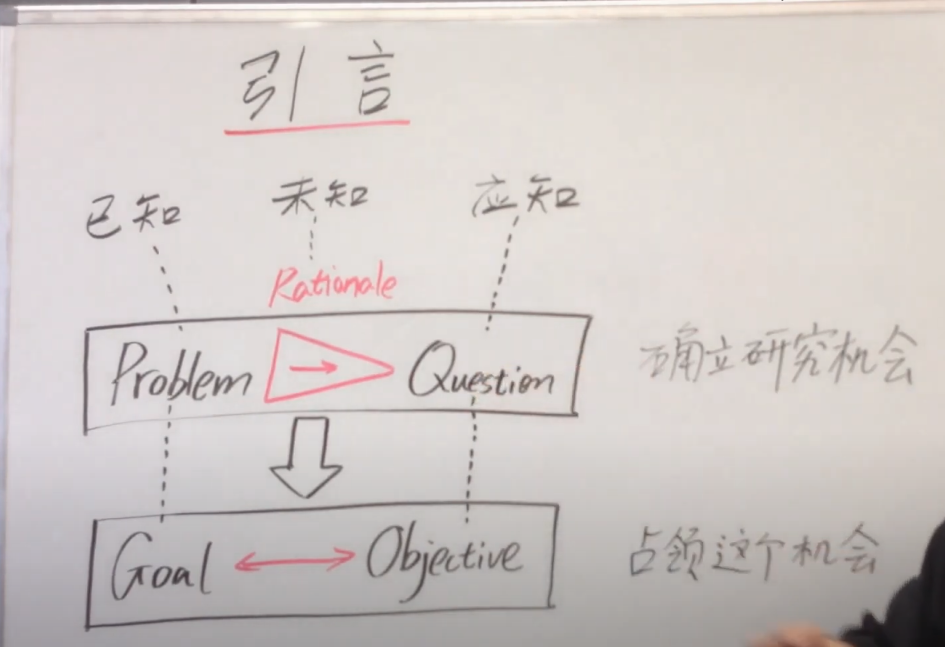 引言
已知 未知 应知
Rationale
Problem → Question 确立研究机会
Goal ↔ Objective 占领这个机会